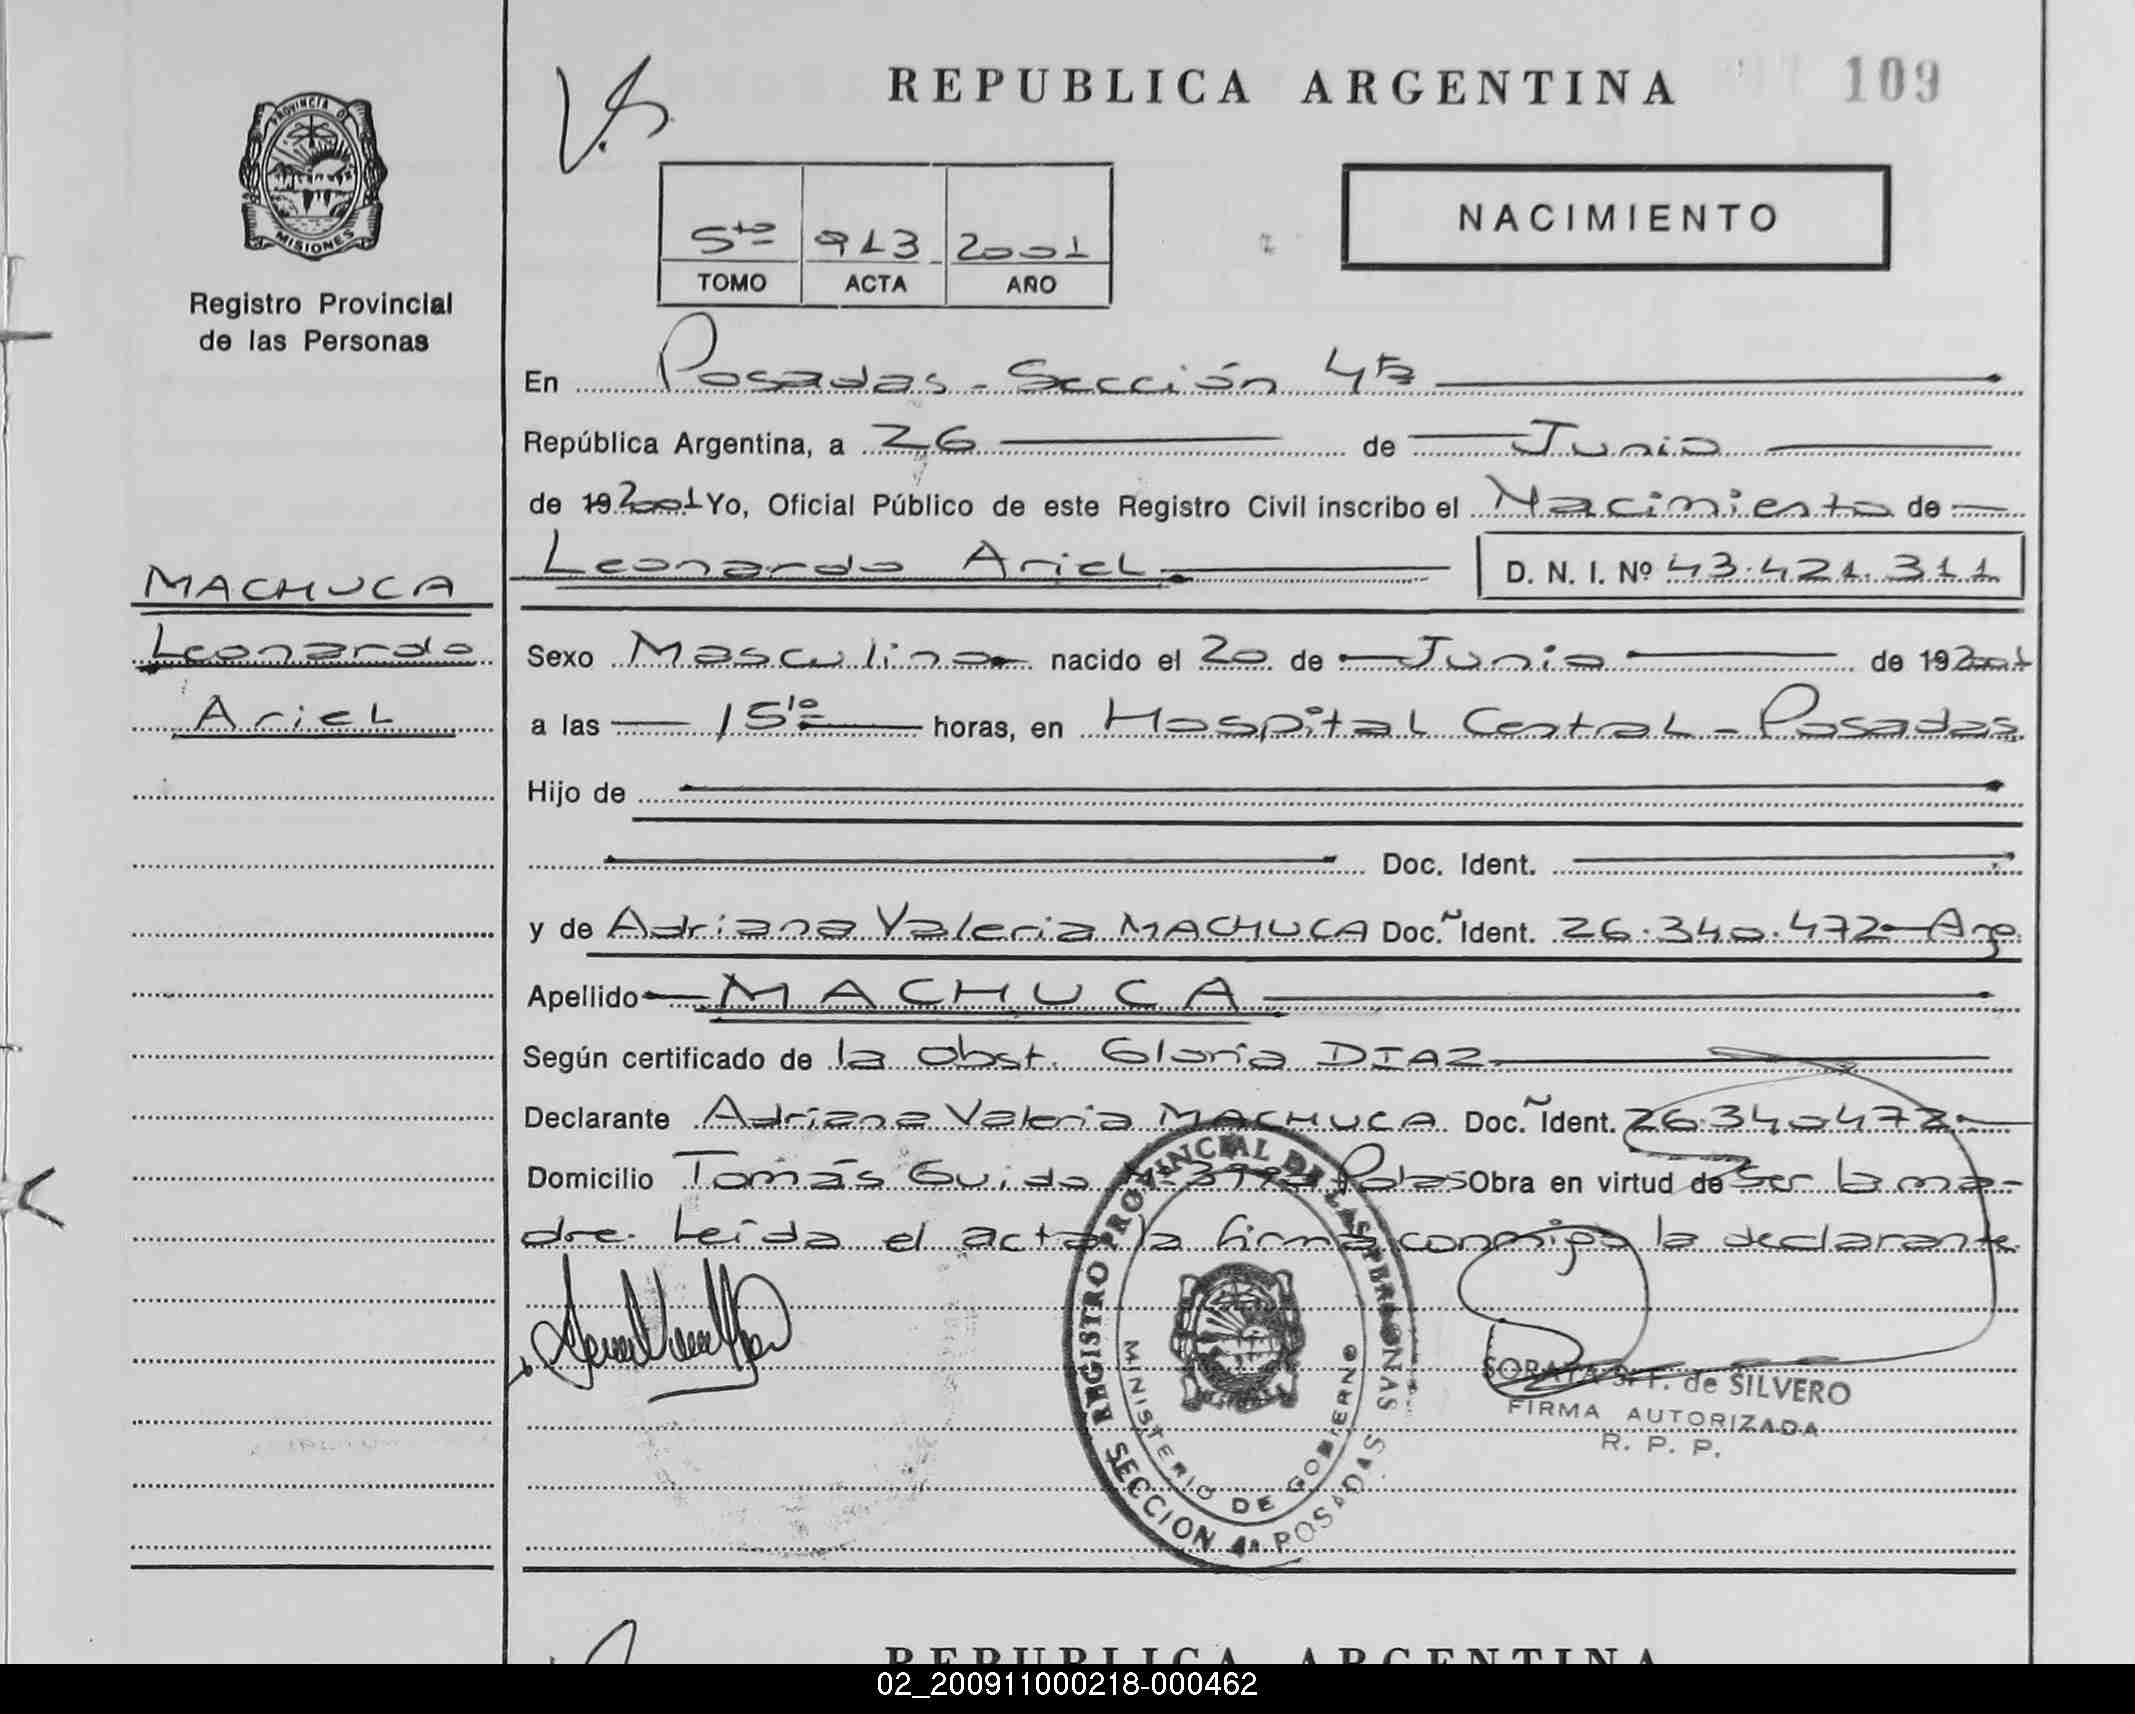 REPUBLICA ARGENTINA 109
PROVINCIA DE MISIONES
Registro Provincial
de las Personas
5to 913 - 2001
TOMO ACTA AÑO
NACIMIENTO
En Posadas - Sección 4ta
República Argentina, a 26 de Junio
de 19 2001 Yo, Oficial Público de este Registro Civil inscribo el Nacimiento de
Leonardo Ariel D. N. I. Nº 43.421.311
MACHUCA
Leonardo
Ariel
Sexo Masculino nacido el 20 de Junio de 19 2001
a las 15 10 horas, en Hospital Central - Posadas
Hijo de
Doc. Ident.
y de Adriana Valeria MACHUCA Doc. Ident. 26.340.472 - Arg.
Apellido MACHUCA
Según certificado de la Obst. Gloria DIAZ
Declarante Adriana Valeria MACHUCA Doc. Ident. 26.340.472
Domicilio Tomás Guido Nº Pdas Obra en virtud de ser la ma-
dre. Leída el acta la firma conmigo la declarante.
REGISTRO PROVINCIAL DE LAS PERSONAS
MINISTERIO DE GOBIERNO
SECCION 4ª POSADAS
de SILVERO
FIRMA AUTORIZADA
R. P. P.
REPUBLICA ARGENTINA
02_200911000218-000462